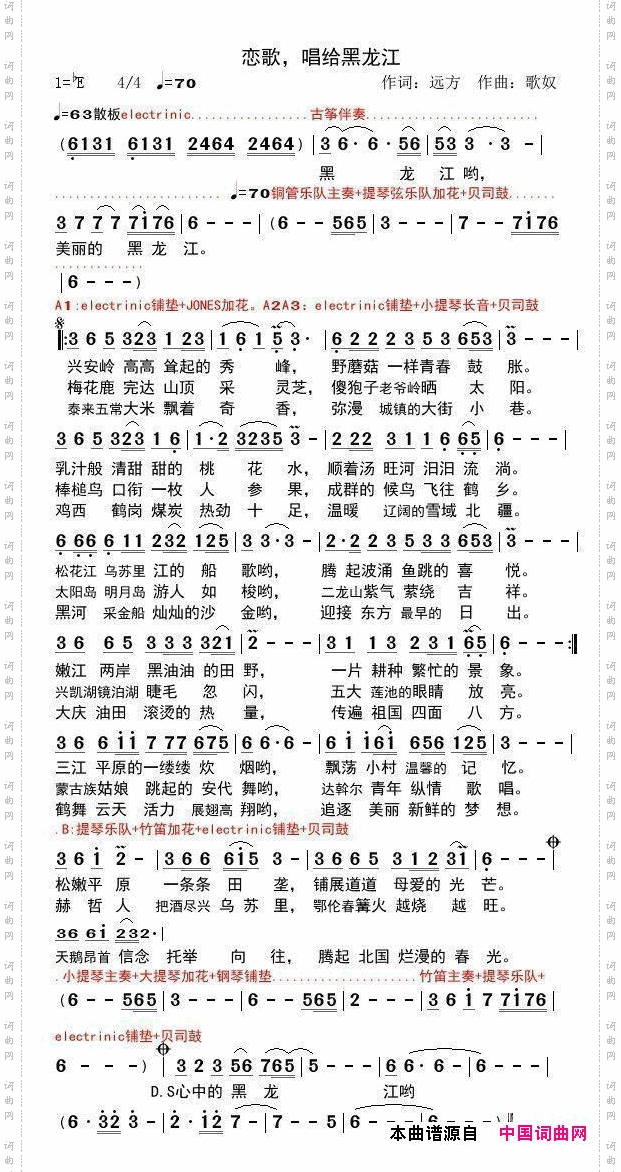 恋歌，唱给黑龙江
1=♭E 4/4 ♩=70 作词：远方 作曲：歌奴
♩=63散板electrinic................古筝伴奏........................
(6131 6131 2464 2464) | 3 6· 6· 56 | 53 3 ·3 - |
黑 龙 江 哟，
♩=70铜管乐队主奏+提琴弦乐队加花+贝司鼓.......
3 7 7 7 7i76 | 6 - - - | (6 - - 565 | 3 - - - | 7 - - 7i76
美丽的 黑 龙 江。
| 6 - - - )
A1:electrinic铺垫+JONES加花。A2A3：electrinic铺垫+小提琴长音+贝司鼓
‖: 3 6 5 323 1 23 | 1 6 1 5 3· | 6 2 2 2 3 5 3 653 | 3 - - - |
兴安岭 高高 耸起的 秀 峰， 野蘑菇 一样青春 鼓 胀。
梅花鹿 完达 山顶 采 灵芝，傻狍子老爷岭晒 太 阳。
泰来五常大米 飘着 奇 香， 弥漫 城镇的大街 小 巷。
3 6 5 323 1 6 | 1·2 3235 3 - | 2 22 3 1 1 6 6 5 | 6 - - - |
乳汁般 清甜 甜的 桃 花 水， 顺着汤 旺河 汩汩 流 淌。
棒槌鸟 口衔 一枚 人 参 果， 成群的 候鸟 飞往 鹤 乡。
鸡西 鹤岗 煤炭 热劲 十 足， 温暖 辽阔的雪域 北 疆。
6 66 6 11 232 125 | 3 3·3 - | 2·2 2 3 5 3 653 | 3 - - - |
松花江 乌苏里 江的 船 歌哟， 腾 起波涌 鱼跳的 喜 悦。
太阳岛 明月岛 游人 如 梭哟， 二龙山紫气 萦绕 吉 祥。
黑河 采金船 灿灿的沙 金哟， 迎接 东方 最早的 日 出。
3 6 6 5 3 3 3 321 | 2 - - - | 3 1 1 3 2 31 6 5 | 6 - - - :‖
嫩江 两岸 黑油油 的田 野， 一片 耕种 繁忙的 景 象。
兴凯湖镜泊湖 睫毛 忽 闪， 五大 莲池的眼睛 放 亮。
大庆 油田 滚烫的 热 量， 传遍 祖国 四面 八 方。
3 6 6 i i 7 77 675 | 6 6·6 - | 6 i i6i 656 125 | 3 - - - |
三江 平原的一缕缕 炊 烟哟， 飘荡 小村 温馨的 记 忆。
蒙古族姑娘 跳起的 安代 舞哟， 达斡尔 青年 纵情 歌 唱。
鹤舞 云天 活力 展翅高 翔哟， 追逐 美丽 新鲜的 梦 想。
.B:提琴乐队+竹笛加花+electrinic铺垫+贝司鼓
3 6 i 2 - | 3 6 6 6 i 5 3 | 3 6 6 5 3 1 2 3 i | 6 - - - |
松嫩平 原 一条条 田 垄， 铺展道道 母爱的 光 芒。
赫 哲 人 把酒尽兴 乌 苏 里，鄂伦春篝火 越烧 越 旺。
3 6 6 i 2 3 2· |
天鹅昂首 信念 托举 向 往， 腾起 北国 烂漫的 春 光。
.小提琴主奏+大提琴加花+钢琴铺垫......................竹笛主奏+提琴乐队+
(6 - - 565 | 3 - - - | 6 - - 565 | 2 - - - | 3 6 i 7 7i76
electrinic铺垫+贝司鼓
6 - - - ) | 3 2 3 56 765 | 5 - - - | 6 6· 6 - | 6 - - -
D.S心中的 黑 龙 江哟
(6·32 3 - | 2·12 7 - | 7 - - 5 | 6 - - - | 6 - - - ) ‖
本曲谱源自 中国词曲网
词曲网